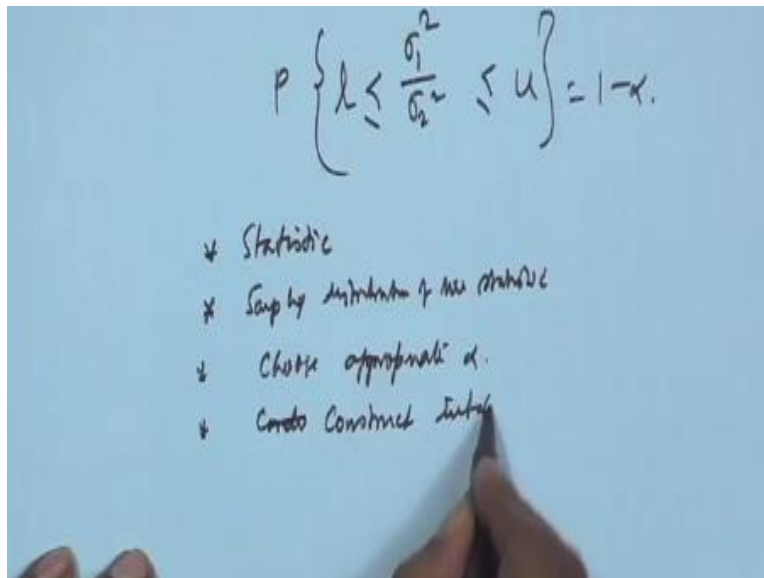 P { l ≤ σ₁² / σ₂² ≤ u } = 1-α.
* Statistic
* Sampling distribution of the statistic
* Choose appropriate α.
* Construct